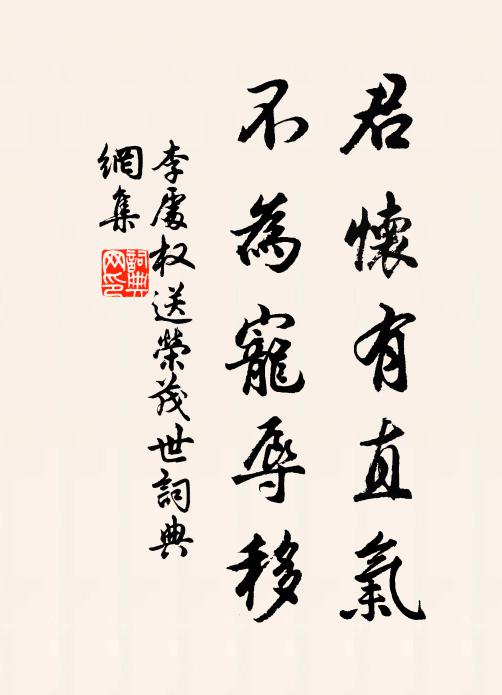 君懷有直氣
不為寵辱移
李處权送榮茂世詞典
網集
詞典
网印